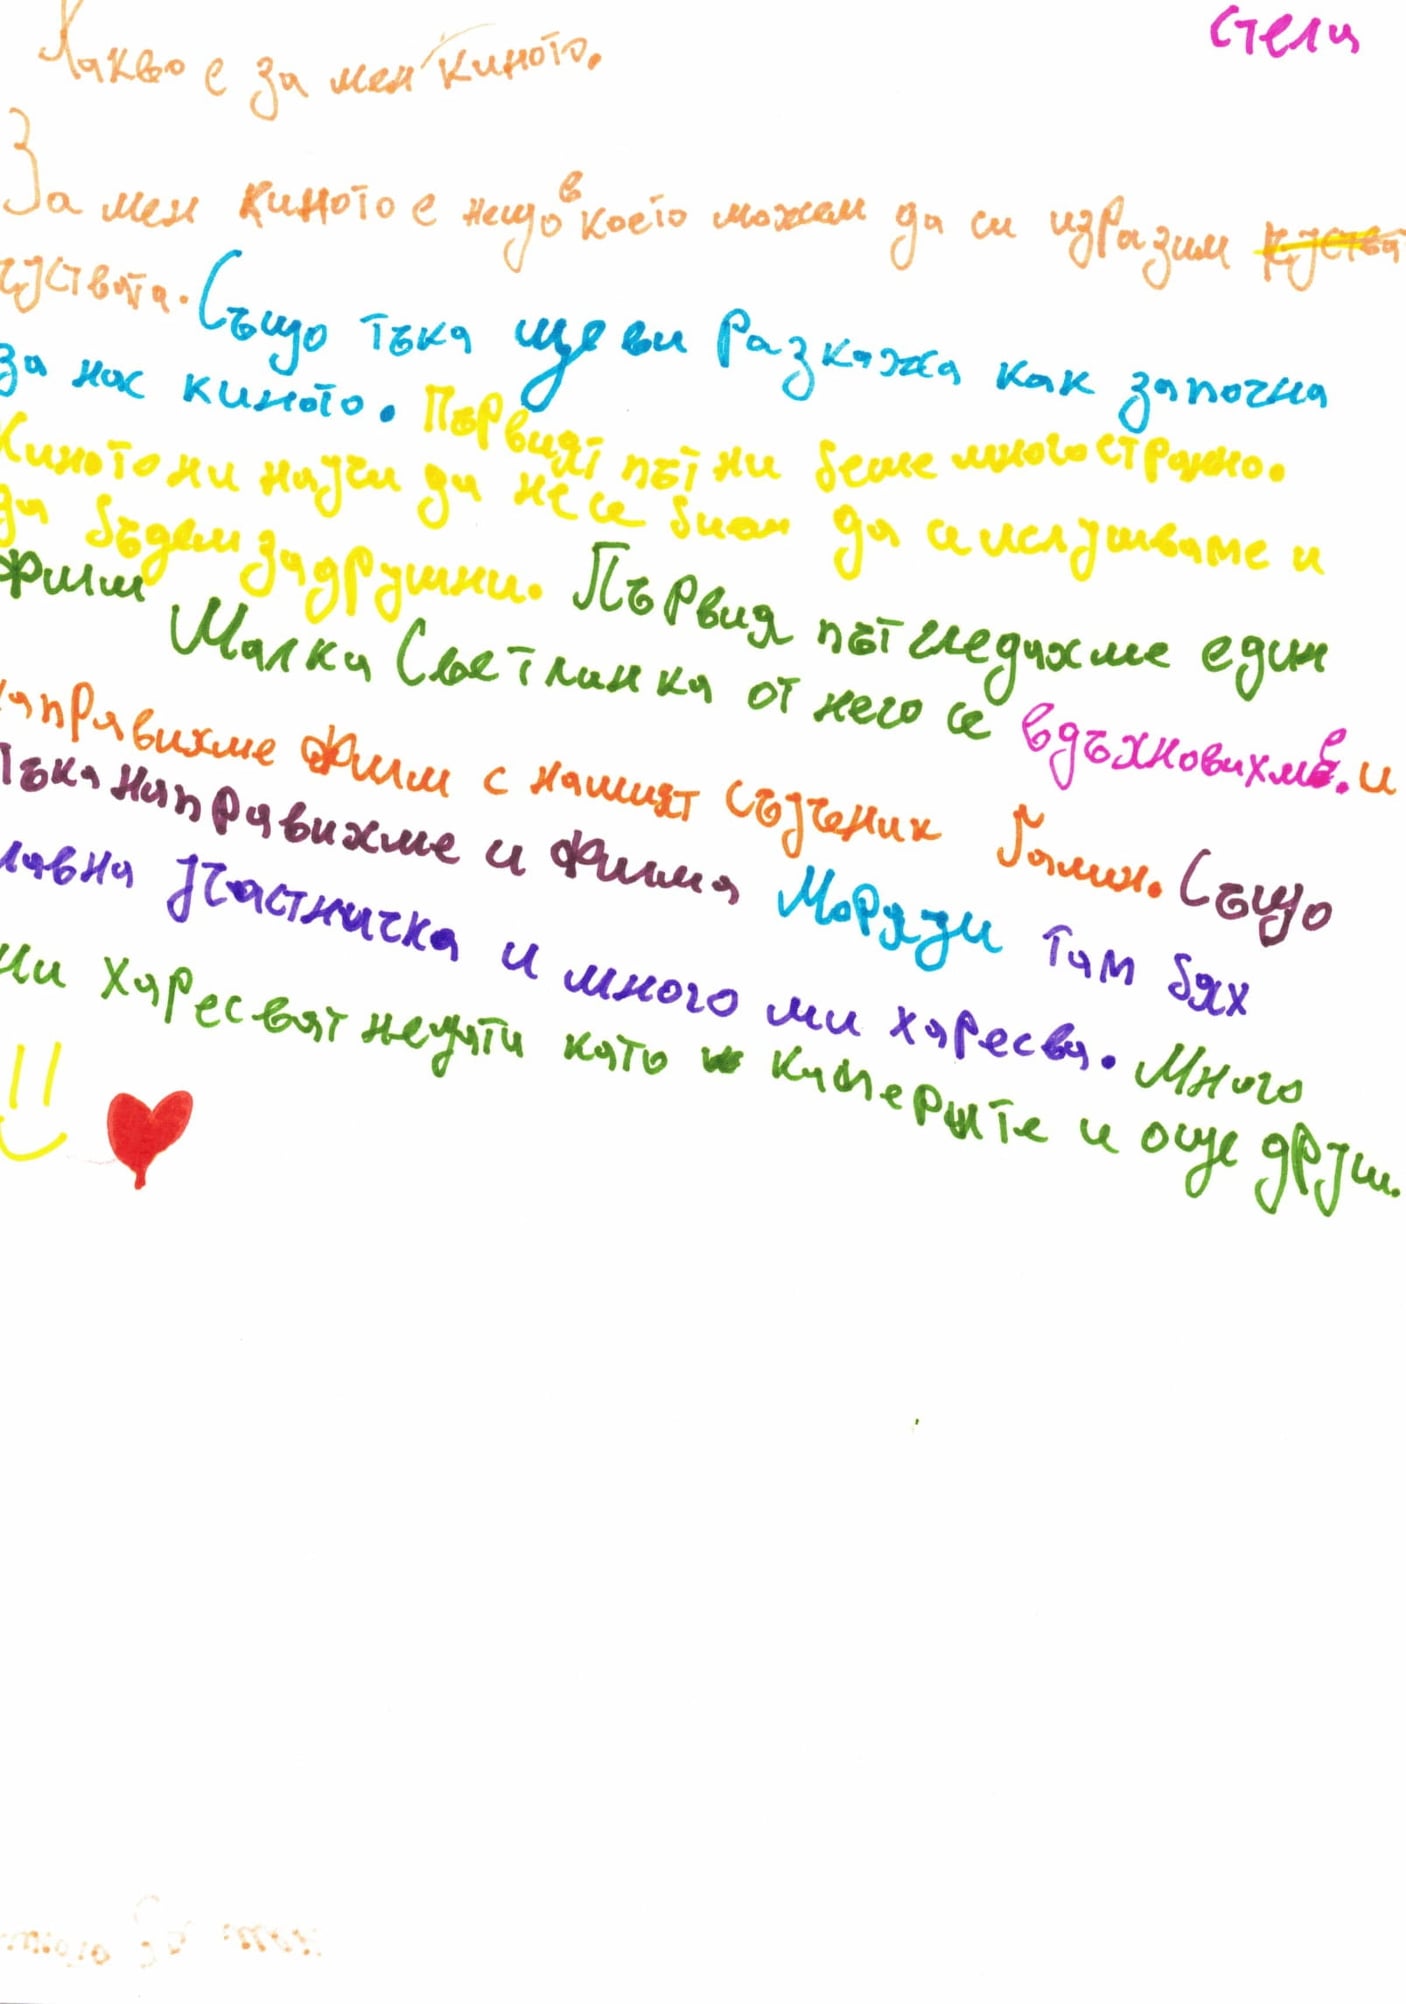 Стела
Какво е за мен киното.
За мен киното е нещо в което можем да си изразим куства
чуствата. Също тъка ще ви разкажа как започна
за нас киното. Първият път ни беше много странно.
Киното ни научи да не се бием да се ислушваме и
да бъдем задружни. Първия път гледахме един
филм Малка Светлинка от него се вдъхновихме. и
направихме филм с нашият съученик Галин. Също
тъка направихме и филма Морузи там бях
лавна участничка и много ми харесва. Много
ми харесват нещата като камерите и още други.